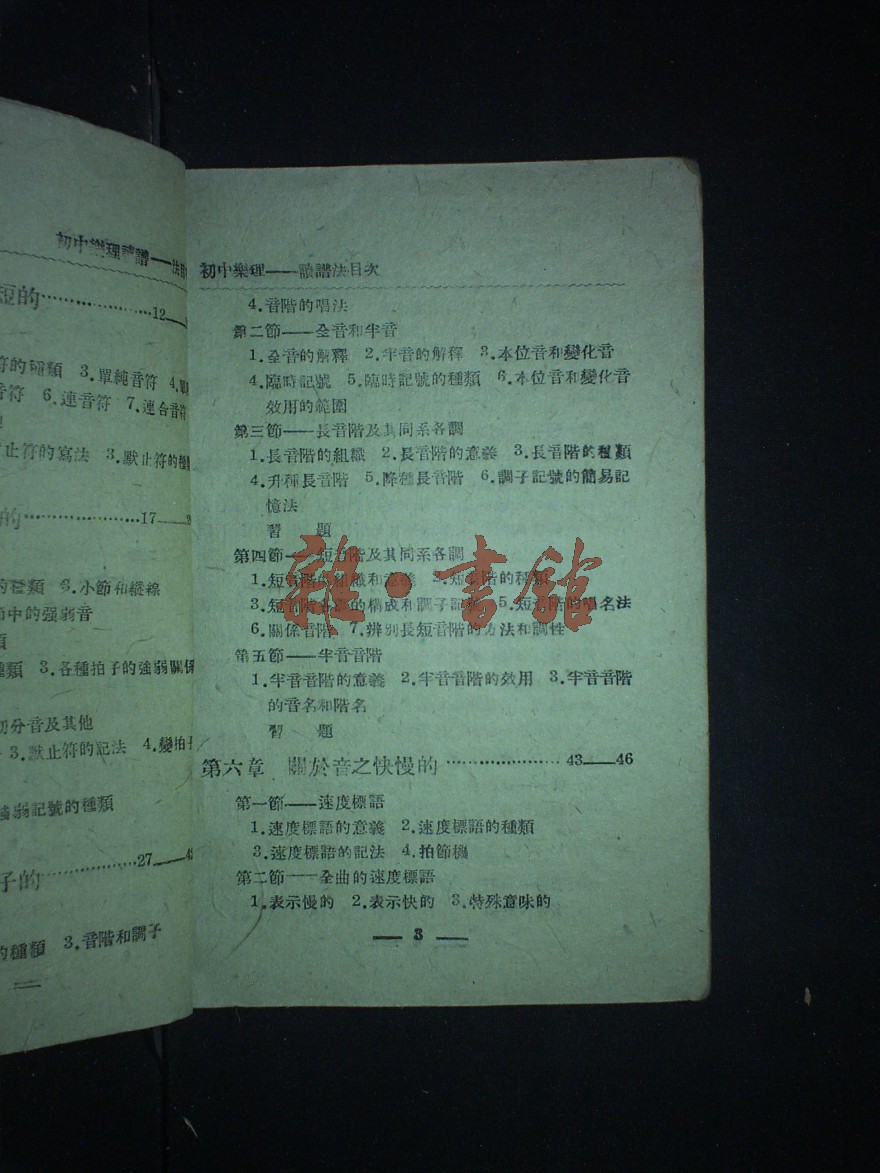 初中樂理讀譜——法目
短的……………12
符的種類 3.單純音符 4.單
音符 6.連音符 7.連合音符
止符的寫法 3.默止符的種
的…………………17
的種類 3.小節和縱線
節中的强弱音
類
種類 3.各種拍子的強弱關係
切分音及其他
3.默止符的記法 4.變拍子
强弱記號的種類
子的……………27
的種類 3.音階和調子
初中樂理——讀譜法目次
4.音階的唱法
第二節——全音和半音
1.全音的解釋 2.半音的解釋 3.本位音和變化音
4.臨時記號 5.臨時記號的種類 6.本位音和變化音
效用的範圍
第三節——長音階及其同系各調
1.長音階的組織 2.長音階的意義 3.長音階的種類
4.升種長音階 5.降種長音階 6.調子記號的簡易記
憶法
習 題
第四節——短音階及其同系各調
1.短音階的組織和意義 2.短音階的種類
3.短音階各部的構成和調子記號 5.短音階的唱名法
6.關係音階 7.辨別長短音階的方法和調性
第五節——半音音階
1.半音音階的意義 2.半音音階的效用 3.半音音階
的音名和階名
習 題
第六章 關於音之快慢的…………………43——46
第一節——速度標語
1.速度標語的意義 2.速度標語的種類
3.速度標語的記法 4.拍節機
第二節——全曲的速度標語
1.表示慢的 2.表示快的 3.特殊意味的
— 3 —
雜·書館